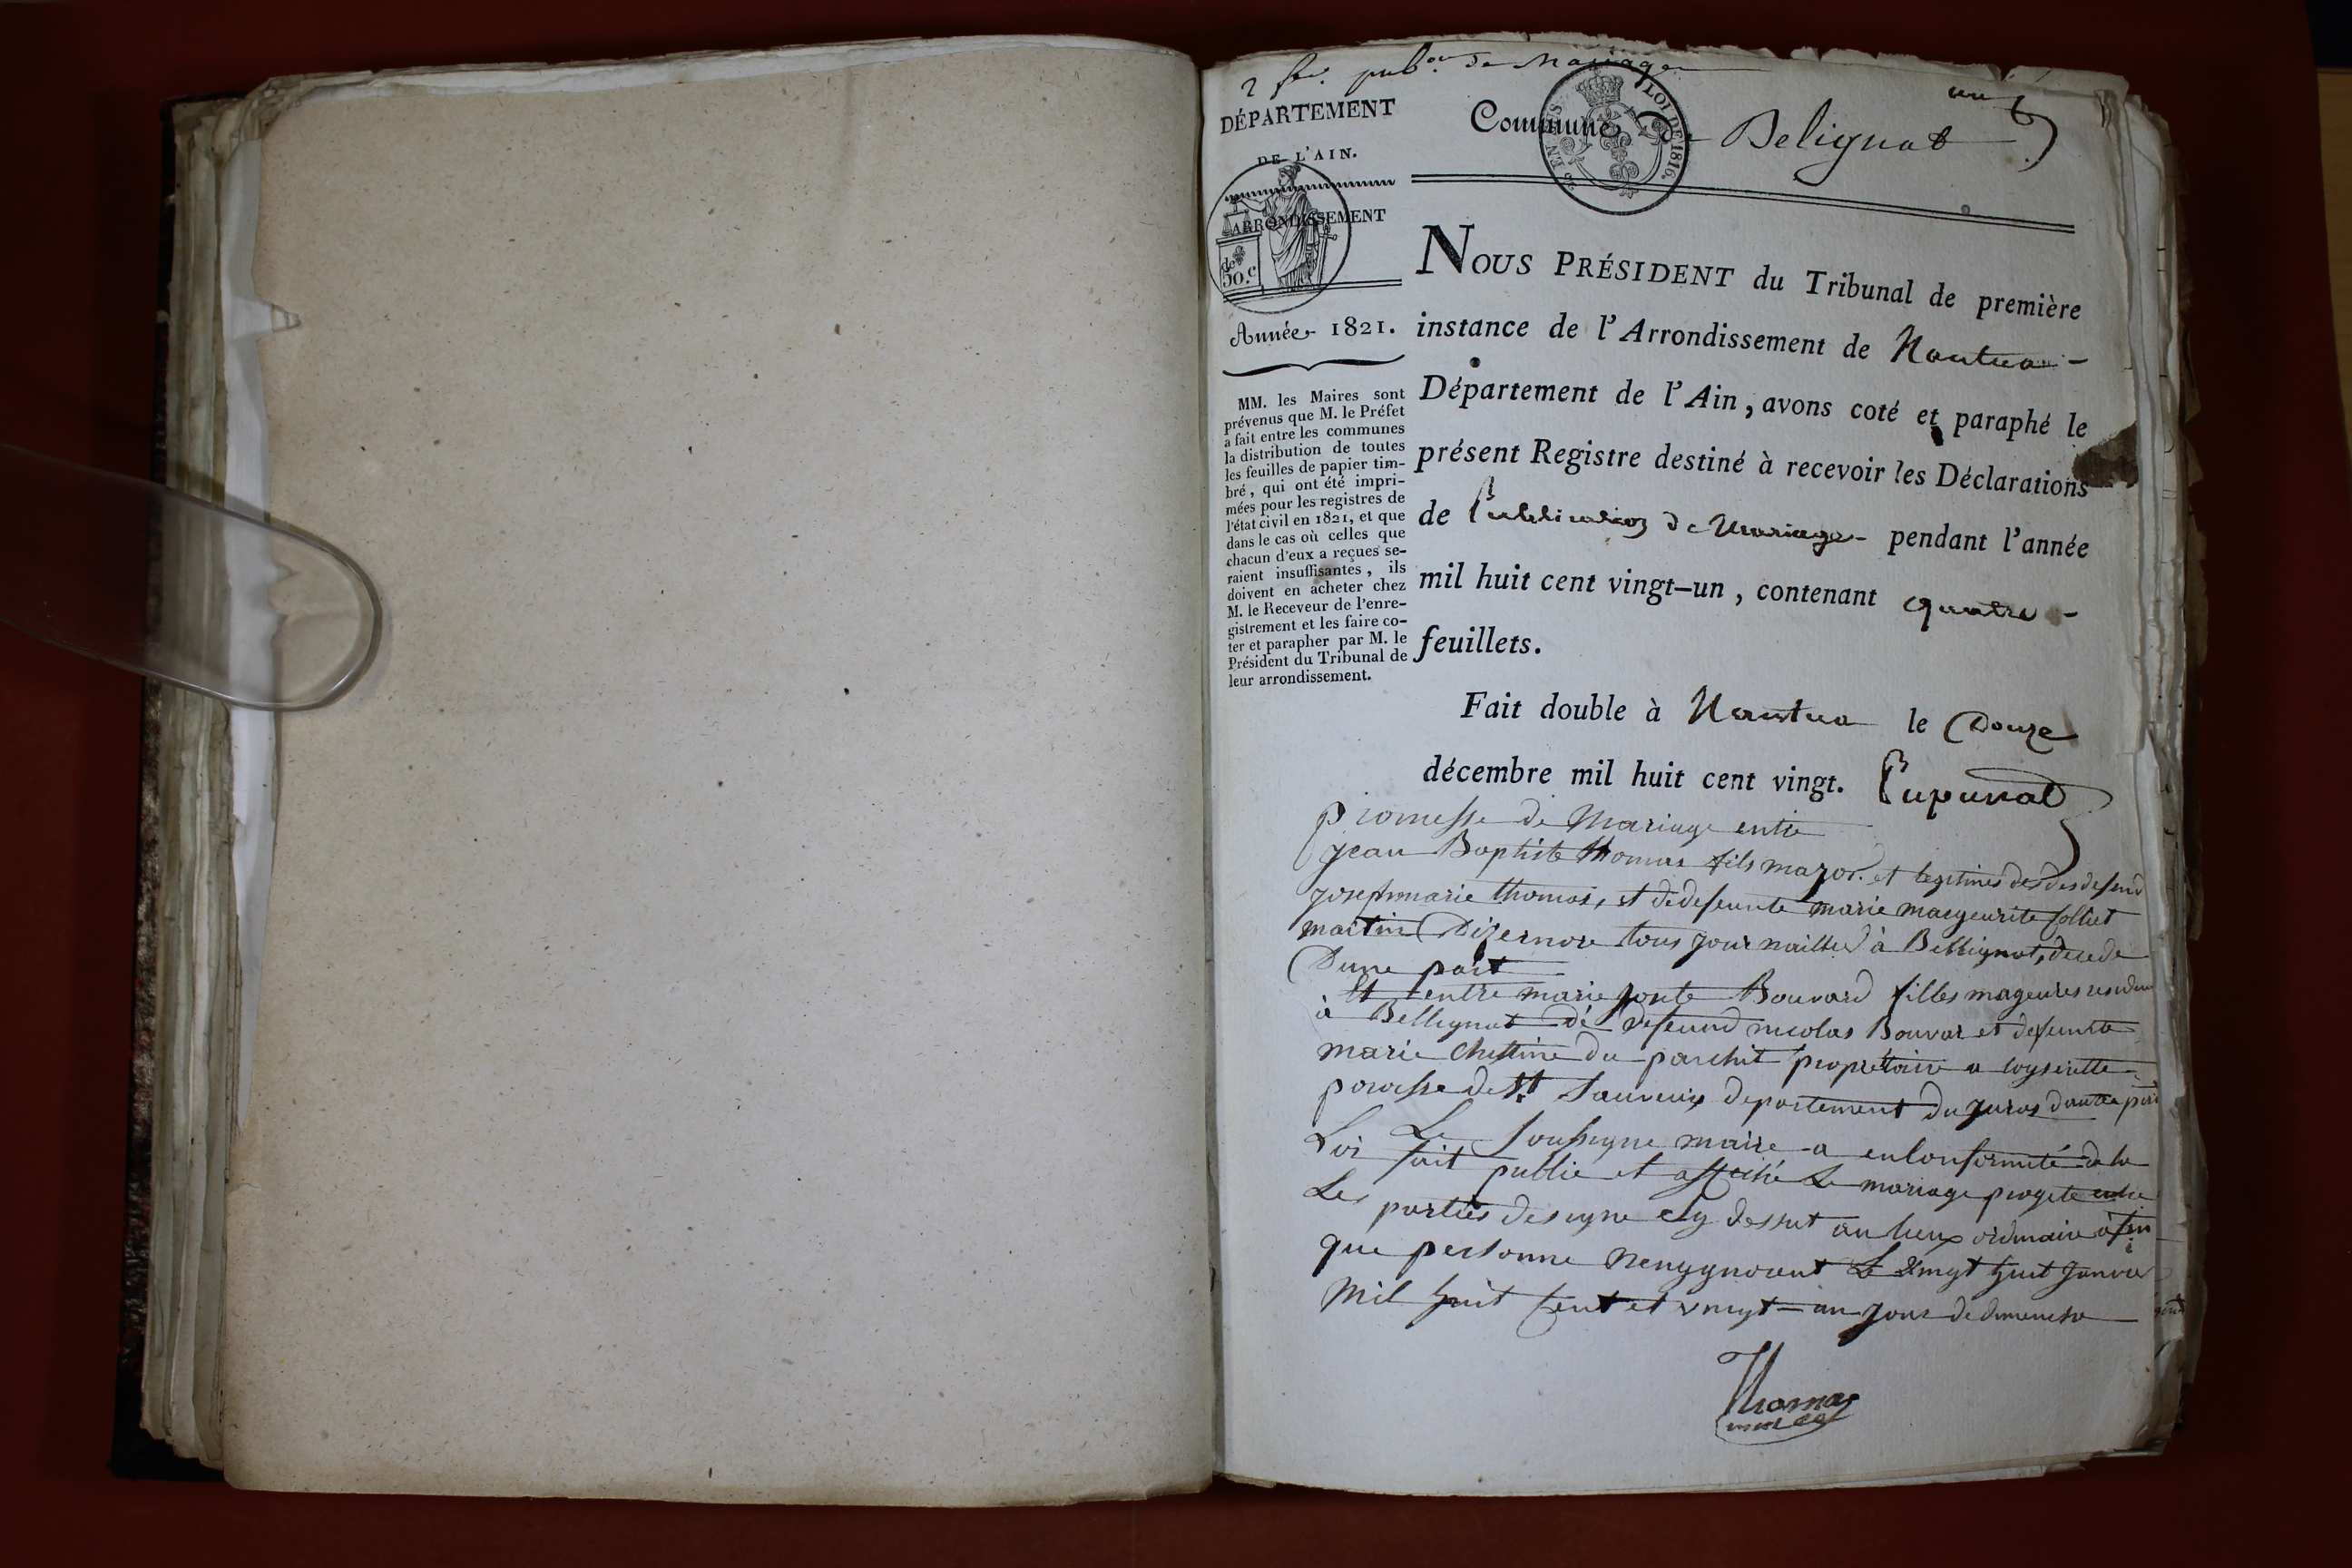 2 feu. pub.on de Mariage
un
DÉPARTEMENT
DE L'AIN.
ARRONDISSEMENT
de
50.c
Année 1821.
MM. les Maires sont
prévenus que M. le Préfet
a fait entre les communes
la distribution de toutes
les feuilles de papier tim-
bré, qui ont été impri-
mées pour les registres de
l'état civil en 1821, et que
dans le cas où celles que
chacun d'eux a reçues se-
raient insuffisantes, ils
doivent en acheter chez
M. le Receveur de l'enre-
gistrement et les faire co-
ter et parapher par M. le
Président du Tribunal de
leur arrondissement.
Commune de Belignat
LOI DE 1816.
NOUS PRÉSIDENT du Tribunal de première
instance de l'Arrondissement de Nantua -
Département de l'Ain, avons coté et paraphé le
présent Registre destiné à recevoir les Déclarations
de Publication de Mariage - pendant l'année
mil huit cent vingt-un, contenant quatre -
feuillets.
Fait double à Nantua le Douze
décembre mil huit cent vingt.
promesse de Mariage entre
jean Baptiste thomas fils major et legitimes des defend
josephmarie thomas, et dedefeunte marie margeurite
martin Dizernore tous journaillier à Bellignat, decede
Dune part
Et entre marie Bouvard filles mageures
à Bellignat dé defeund nicolas Bouvar et defeunte
marie du parchit propretaire a
paroisse de St Sauveur departement du juras dautre part
Le soussigne maire a enconformité de la
Loi fait publie et affiché Le mariage progete entre
Les parties designe cy dessut au lieux ordinaire afin
que personne nengygnorent Le vingt huit janvier
mil huit cent et vingt = un jour de dimenche
Thomas
maire